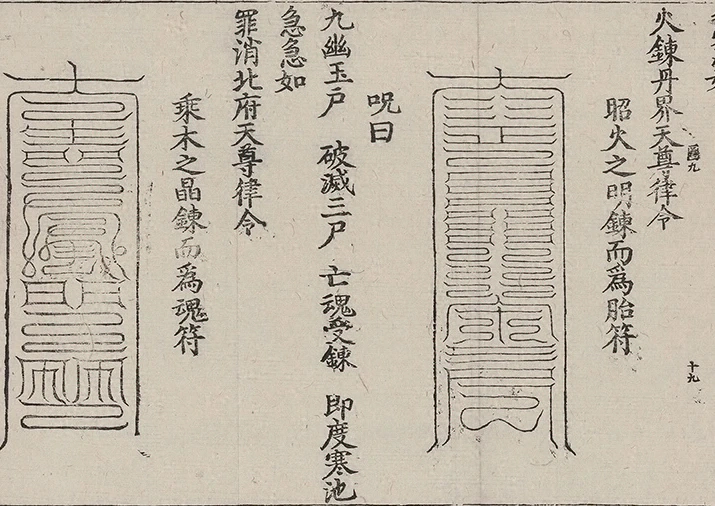 火鍊丹界天尊律令
昭火之明鍊而爲胎符
呪曰
九幽玉戶　破滅三尸　亡魂受鍊　即度寒池
急急如
罪消北府天尊律令
乘木之晶鍊而爲魂符
十九